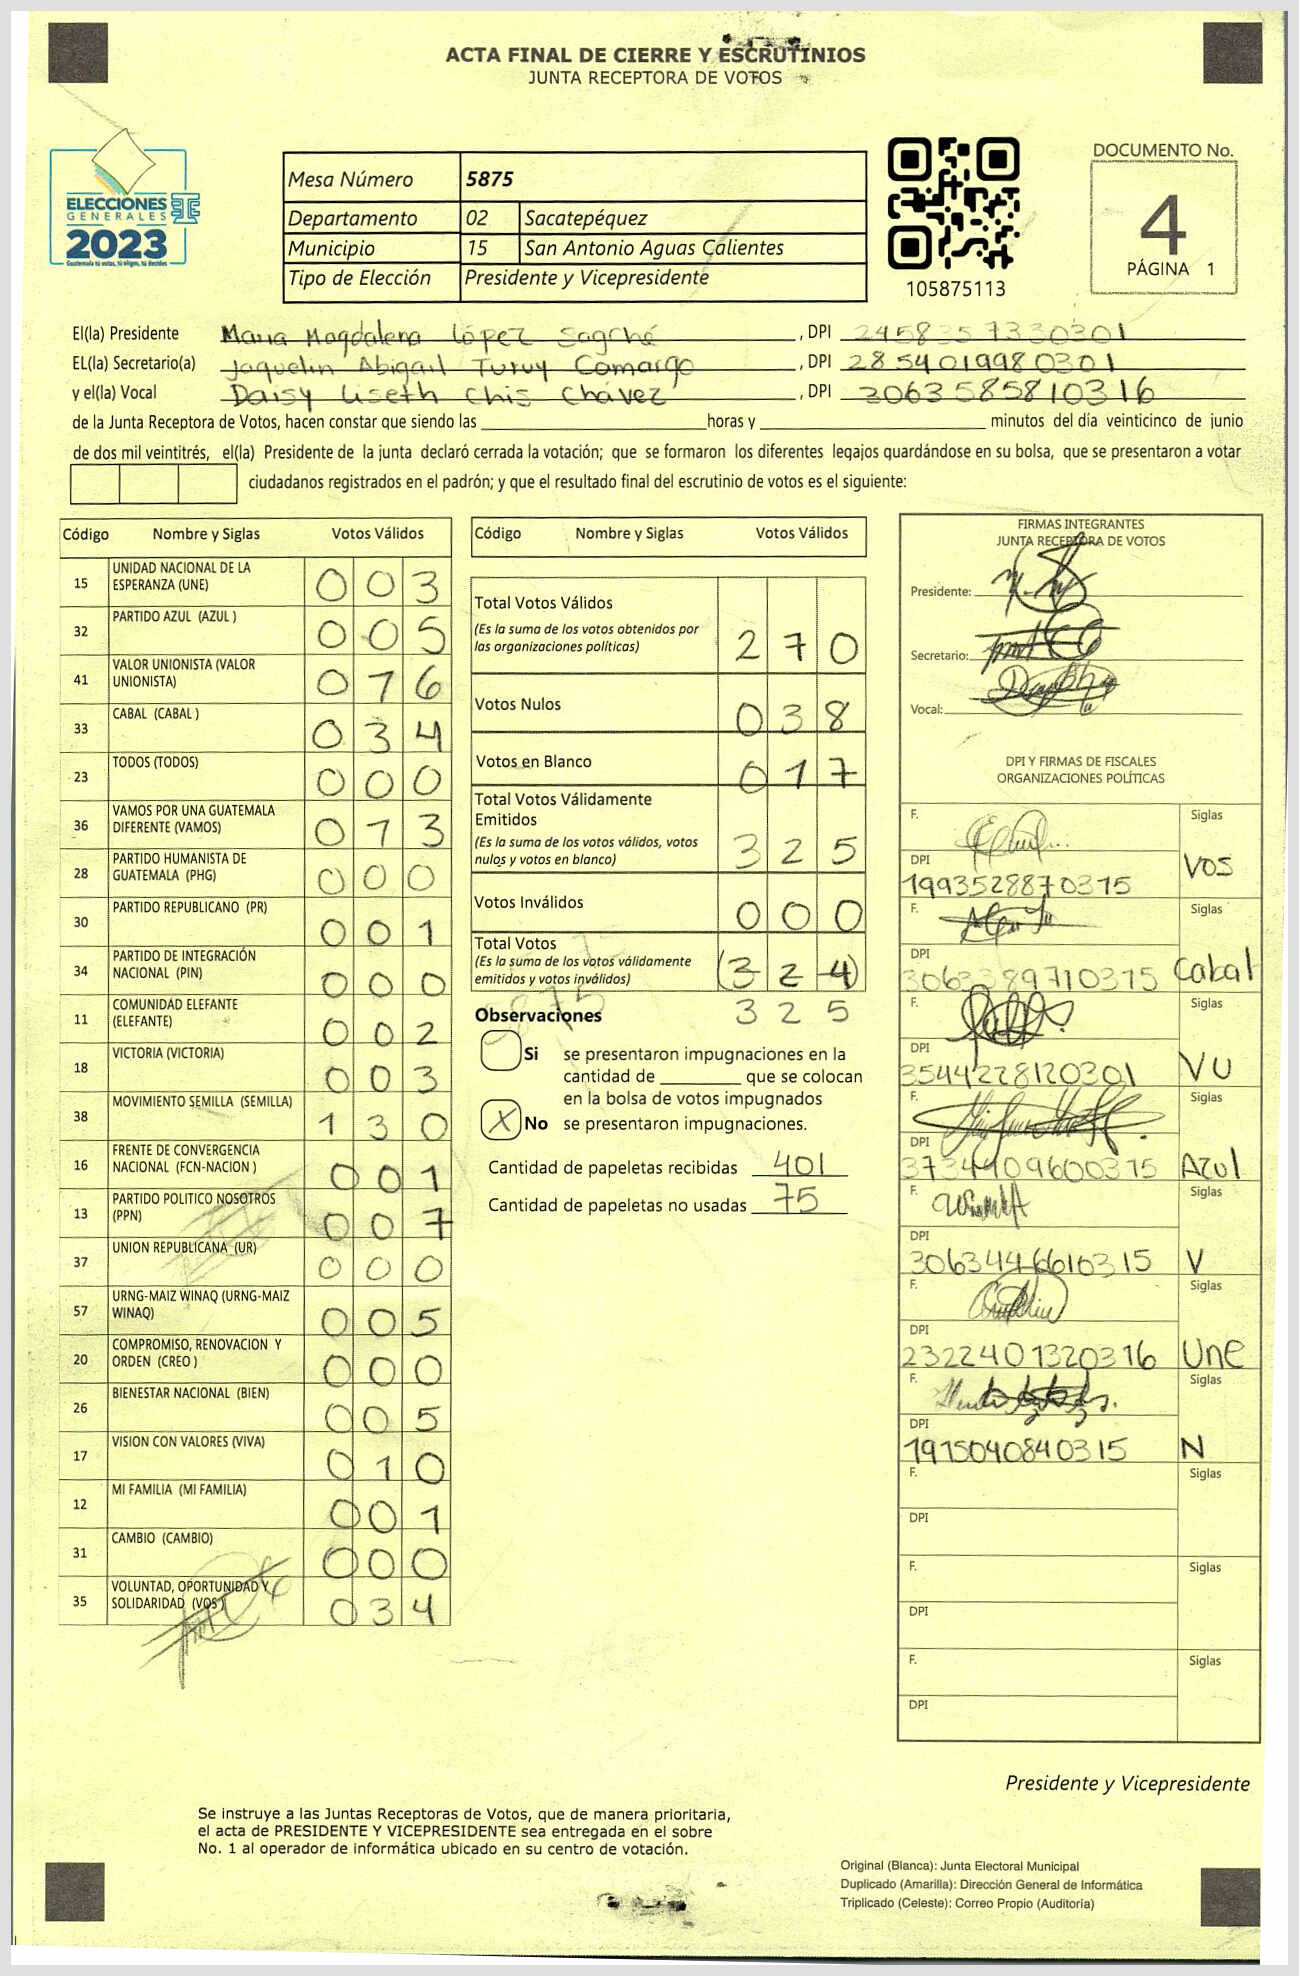 ACTA FINAL DE CIERRE Y ESCRUTINIOS
JUNTA RECEPTORA DE VOTOS
ELECCIONES
GENERALES
2023
Guatemala tú votas, tú eliges, tú decides
Mesa Número 5875
Departamento 02 Sacatepéquez
Municipio 15 San Antonio Aguas Calientes
Tipo de Elección Presidente y Vicepresidente
105875113
DOCUMENTO No.
4
PÁGINA 1
El(la) Presidente Maria Magdalena López Sagché, DPI 2458357330301
EL(la) Secretario(a) Jaquelin Abigail Turuy Camargo, DPI 2854019980301
y el(la) Vocal Daisy Liseth Chis Chávez, DPI 3063585810316
de la Junta Receptora de Votos, hacen constar que siendo las ______ horas y ______ minutos del día veinticinco de junio
de dos mil veintitrés, el(la) Presidente de la junta declaró cerrada la votación; que se formaron los diferentes legajos guardándose en su bolsa, que se presentaron a votar
ciudadanos registrados en el padrón; y que el resultado final del escrutinio de votos es el siguiente:
Código Nombre y Siglas Votos Válidos
15 UNIDAD NACIONAL DE LA ESPERANZA (UNE) 003
32 PARTIDO AZUL (AZUL ) 005
41 VALOR UNIONISTA (VALOR UNIONISTA) 076
33 CABAL (CABAL ) 034
23 TODOS (TODOS) 000
36 VAMOS POR UNA GUATEMALA DIFERENTE (VAMOS) 073
28 PARTIDO HUMANISTA DE GUATEMALA (PHG) 000
30 PARTIDO REPUBLICANO (PR) 001
34 PARTIDO DE INTEGRACIÓN NACIONAL (PIN) 000
11 COMUNIDAD ELEFANTE (ELEFANTE) 002
18 VICTORIA (VICTORIA) 003
38 MOVIMIENTO SEMILLA (SEMILLA) 130
16 FRENTE DE CONVERGENCIA NACIONAL (FCN-NACION ) 001
13 PARTIDO POLITICO NOSOTROS (PPN) 007
37 UNION REPUBLICANA (UR) 000
57 URNG-MAIZ WINAQ (URNG-MAIZ WINAQ) 005
20 COMPROMISO, RENOVACION Y ORDEN (CREO ) 000
26 BIENESTAR NACIONAL (BIEN) 005
17 VISION CON VALORES (VIVA) 010
12 MI FAMILIA (MI FAMILIA) 001
31 CAMBIO (CAMBIO) 000
35 VOLUNTAD, OPORTUNIDAD Y SOLIDARIDAD (VOS ) 034
Código Nombre y Siglas Votos Válidos
Total Votos Válidos
(Es la suma de los votos obtenidos por
las organizaciones políticas) 270
Votos Nulos 038
Votos en Blanco 017
Total Votos Válidamente
Emitidos
(Es la suma de los votos válidos, votos
nulos y votos en blanco) 325
Votos Inválidos 000
Total Votos
(Es la suma de los votos válidamente
emitidos y votos inválidos) (324)
325
5875
Observaciones
Si se presentaron impugnaciones en la
cantidad de ______ que se colocan
en la bolsa de votos impugnados
X No se presentaron impugnaciones.
Cantidad de papeletas recibidas 401
Cantidad de papeletas no usadas 75
FIRMAS INTEGRANTES
JUNTA RECEPTORA DE VOTOS
Presidente:
Secretario:
Vocal:
DPI Y FIRMAS DE FISCALES
ORGANIZACIONES POLÍTICAS
F. Siglas
DPI VOS
1993528870315
F. Siglas
DPI
3063389710315 Cabal
F. Siglas
DPI
3544228120301 VU
F. Siglas
DPI
3734409600315 Azul
F. Siglas
DPI
3063446610315 V
F. Siglas
DPI
2322401320316 Une
F. Siglas
DPI
1915040840315 N
F. Siglas
DPI
F. Siglas
DPI
F. Siglas
DPI
Presidente y Vicepresidente
Se instruye a las Juntas Receptoras de Votos, que de manera prioritaria,
el acta de PRESIDENTE Y VICEPRESIDENTE sea entregada en el sobre
No. 1 al operador de informática ubicado en su centro de votación.
Original (Blanca): Junta Electoral Municipal
Duplicado (Amarilla): Dirección General de Informática
Triplicado (Celeste): Correo Propio (Auditoría)